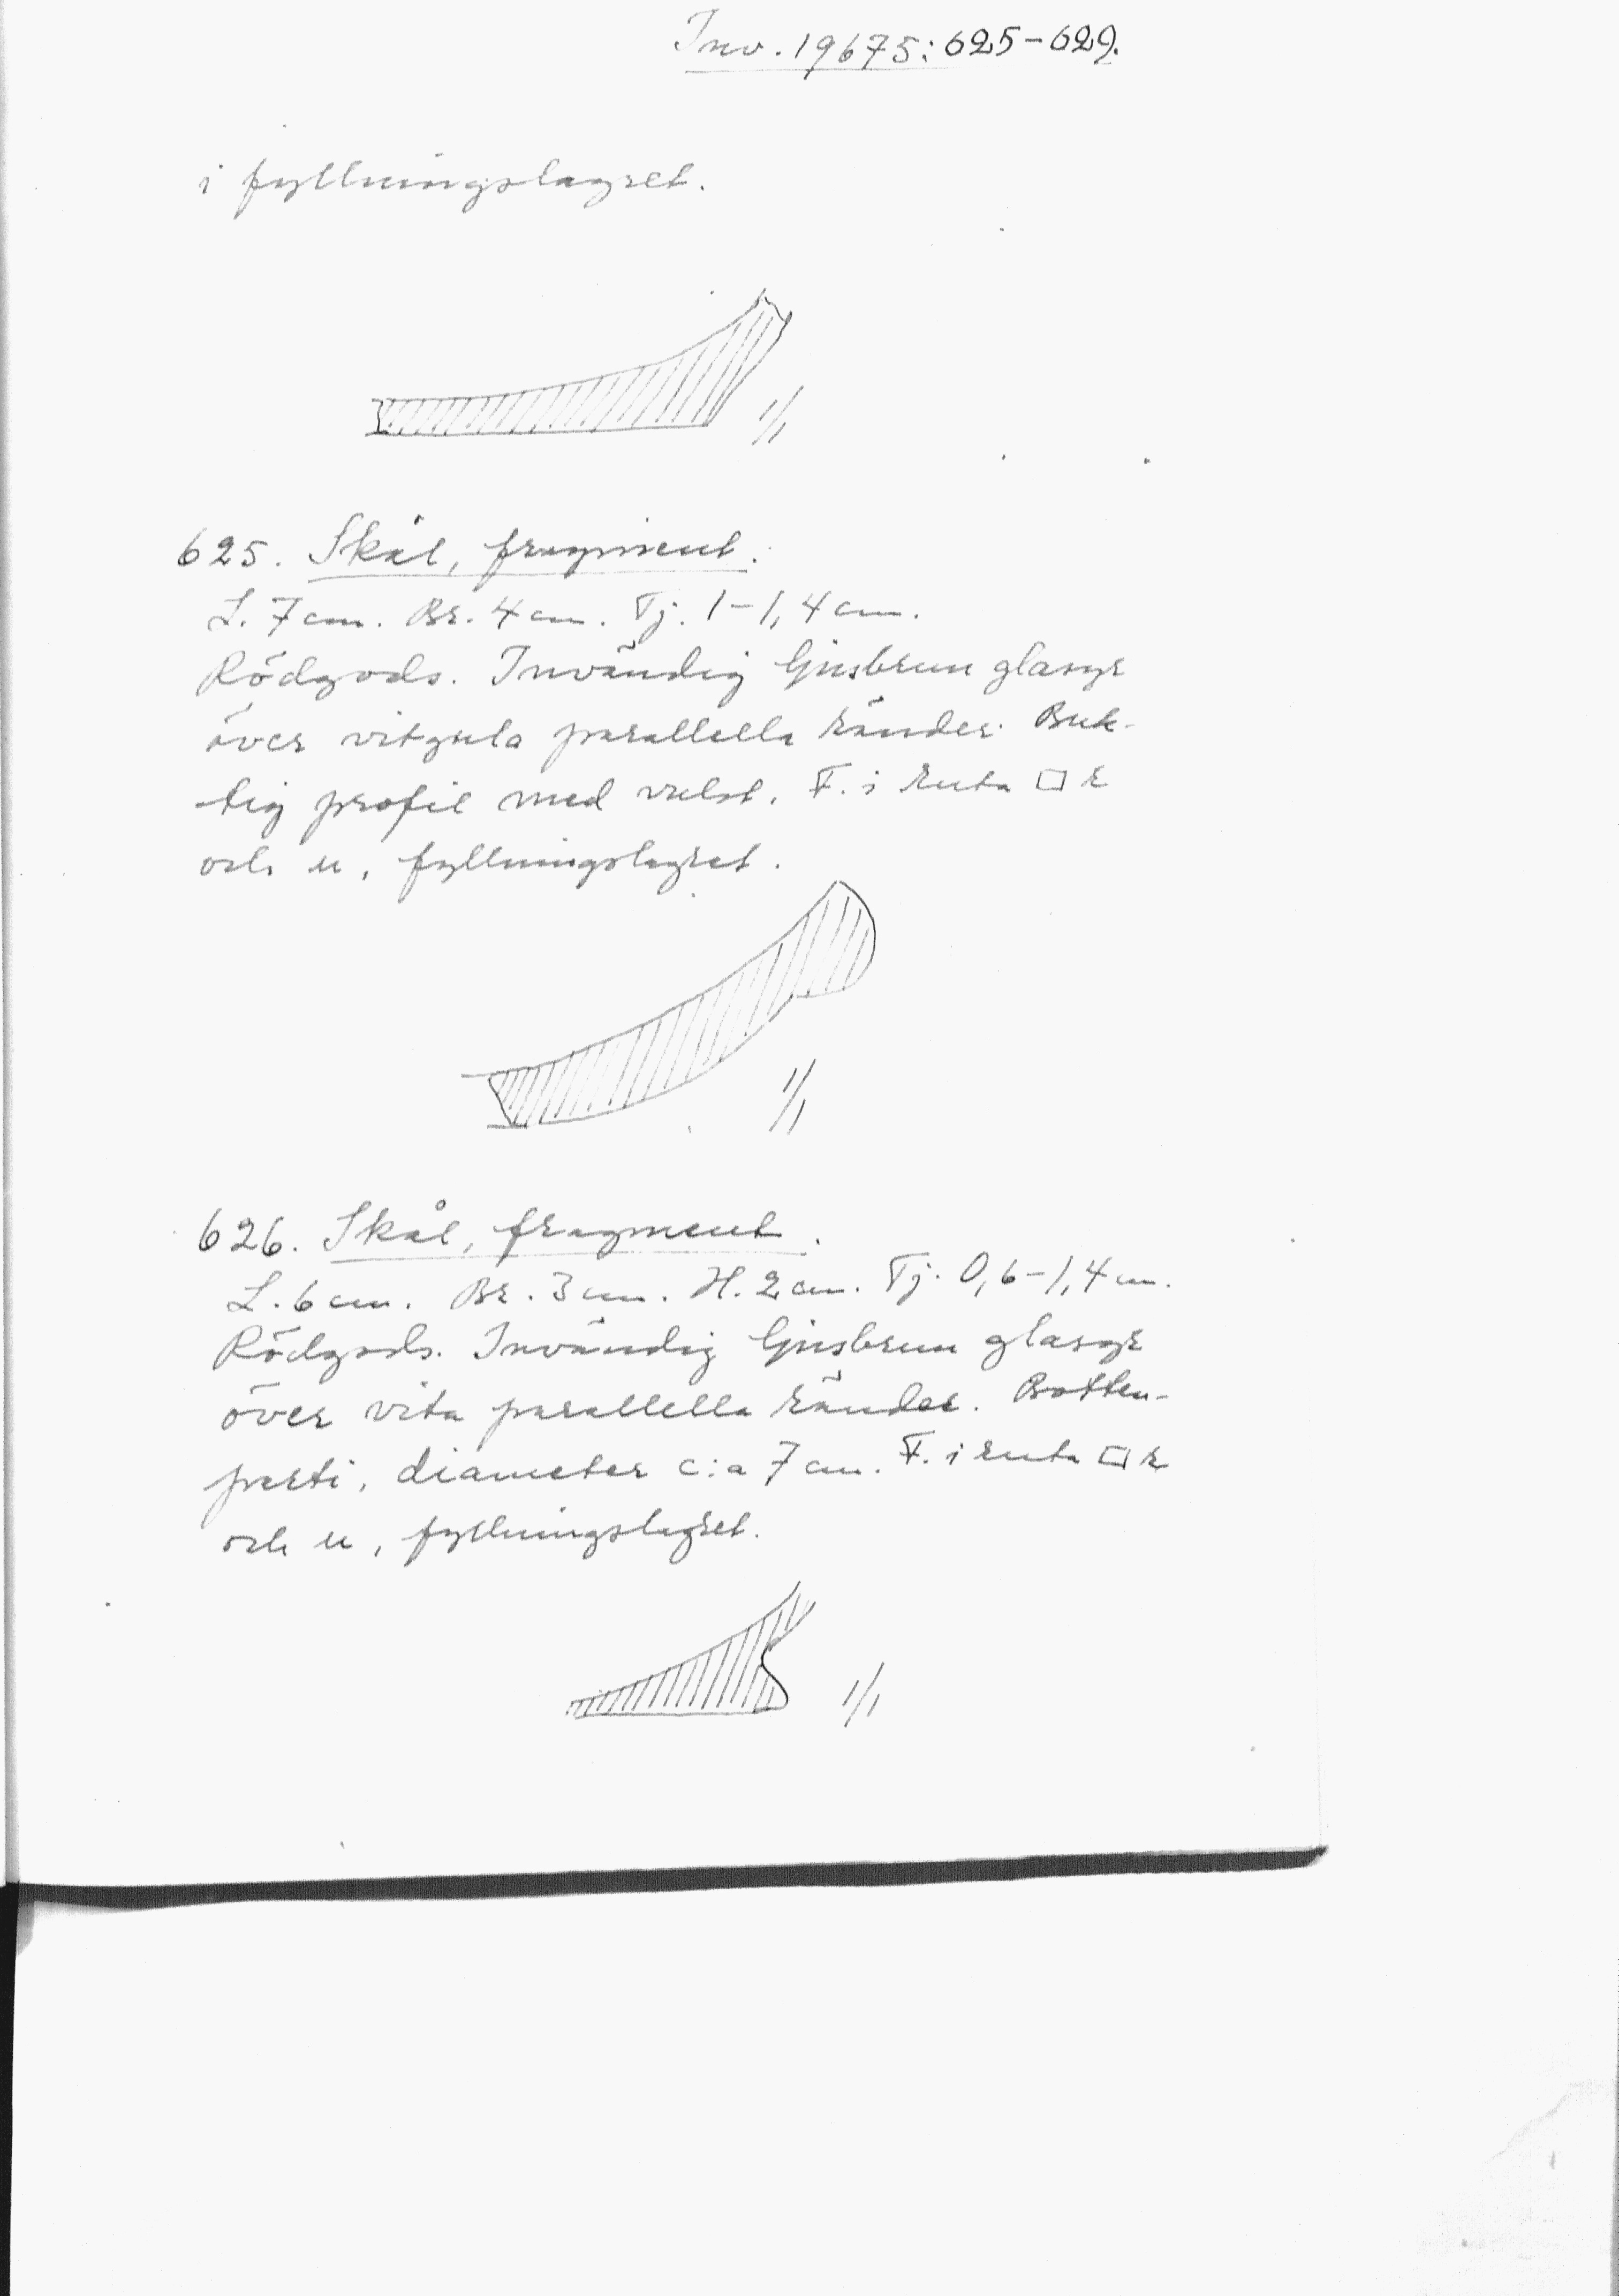 Inv. 19675: 625-629.
i fyllningslagret.
1/1
625. Skål, fragment.
L. 7 cm. Br. 4 cm. Tj. 1-1,4 cm.
Rödgods. Invändig ljusbrun glasyr
över vitgula parallella ränder. Buk-
tig profil med vulst. F. i ruta □ r
och u, fyllningslagret.
1/1
626. Skål, fragment.
L. 6 cm. Br. 3 cm. H. 2 cm. Tj. 0,6-1,4 cm.
Rödgods. Invändig ljusbrun glasyr
över vita parallella ränder. Botten-
parti, diameter c:a 7 cm. F. i ruta □ r
och u, fyllningslagret.
1/1